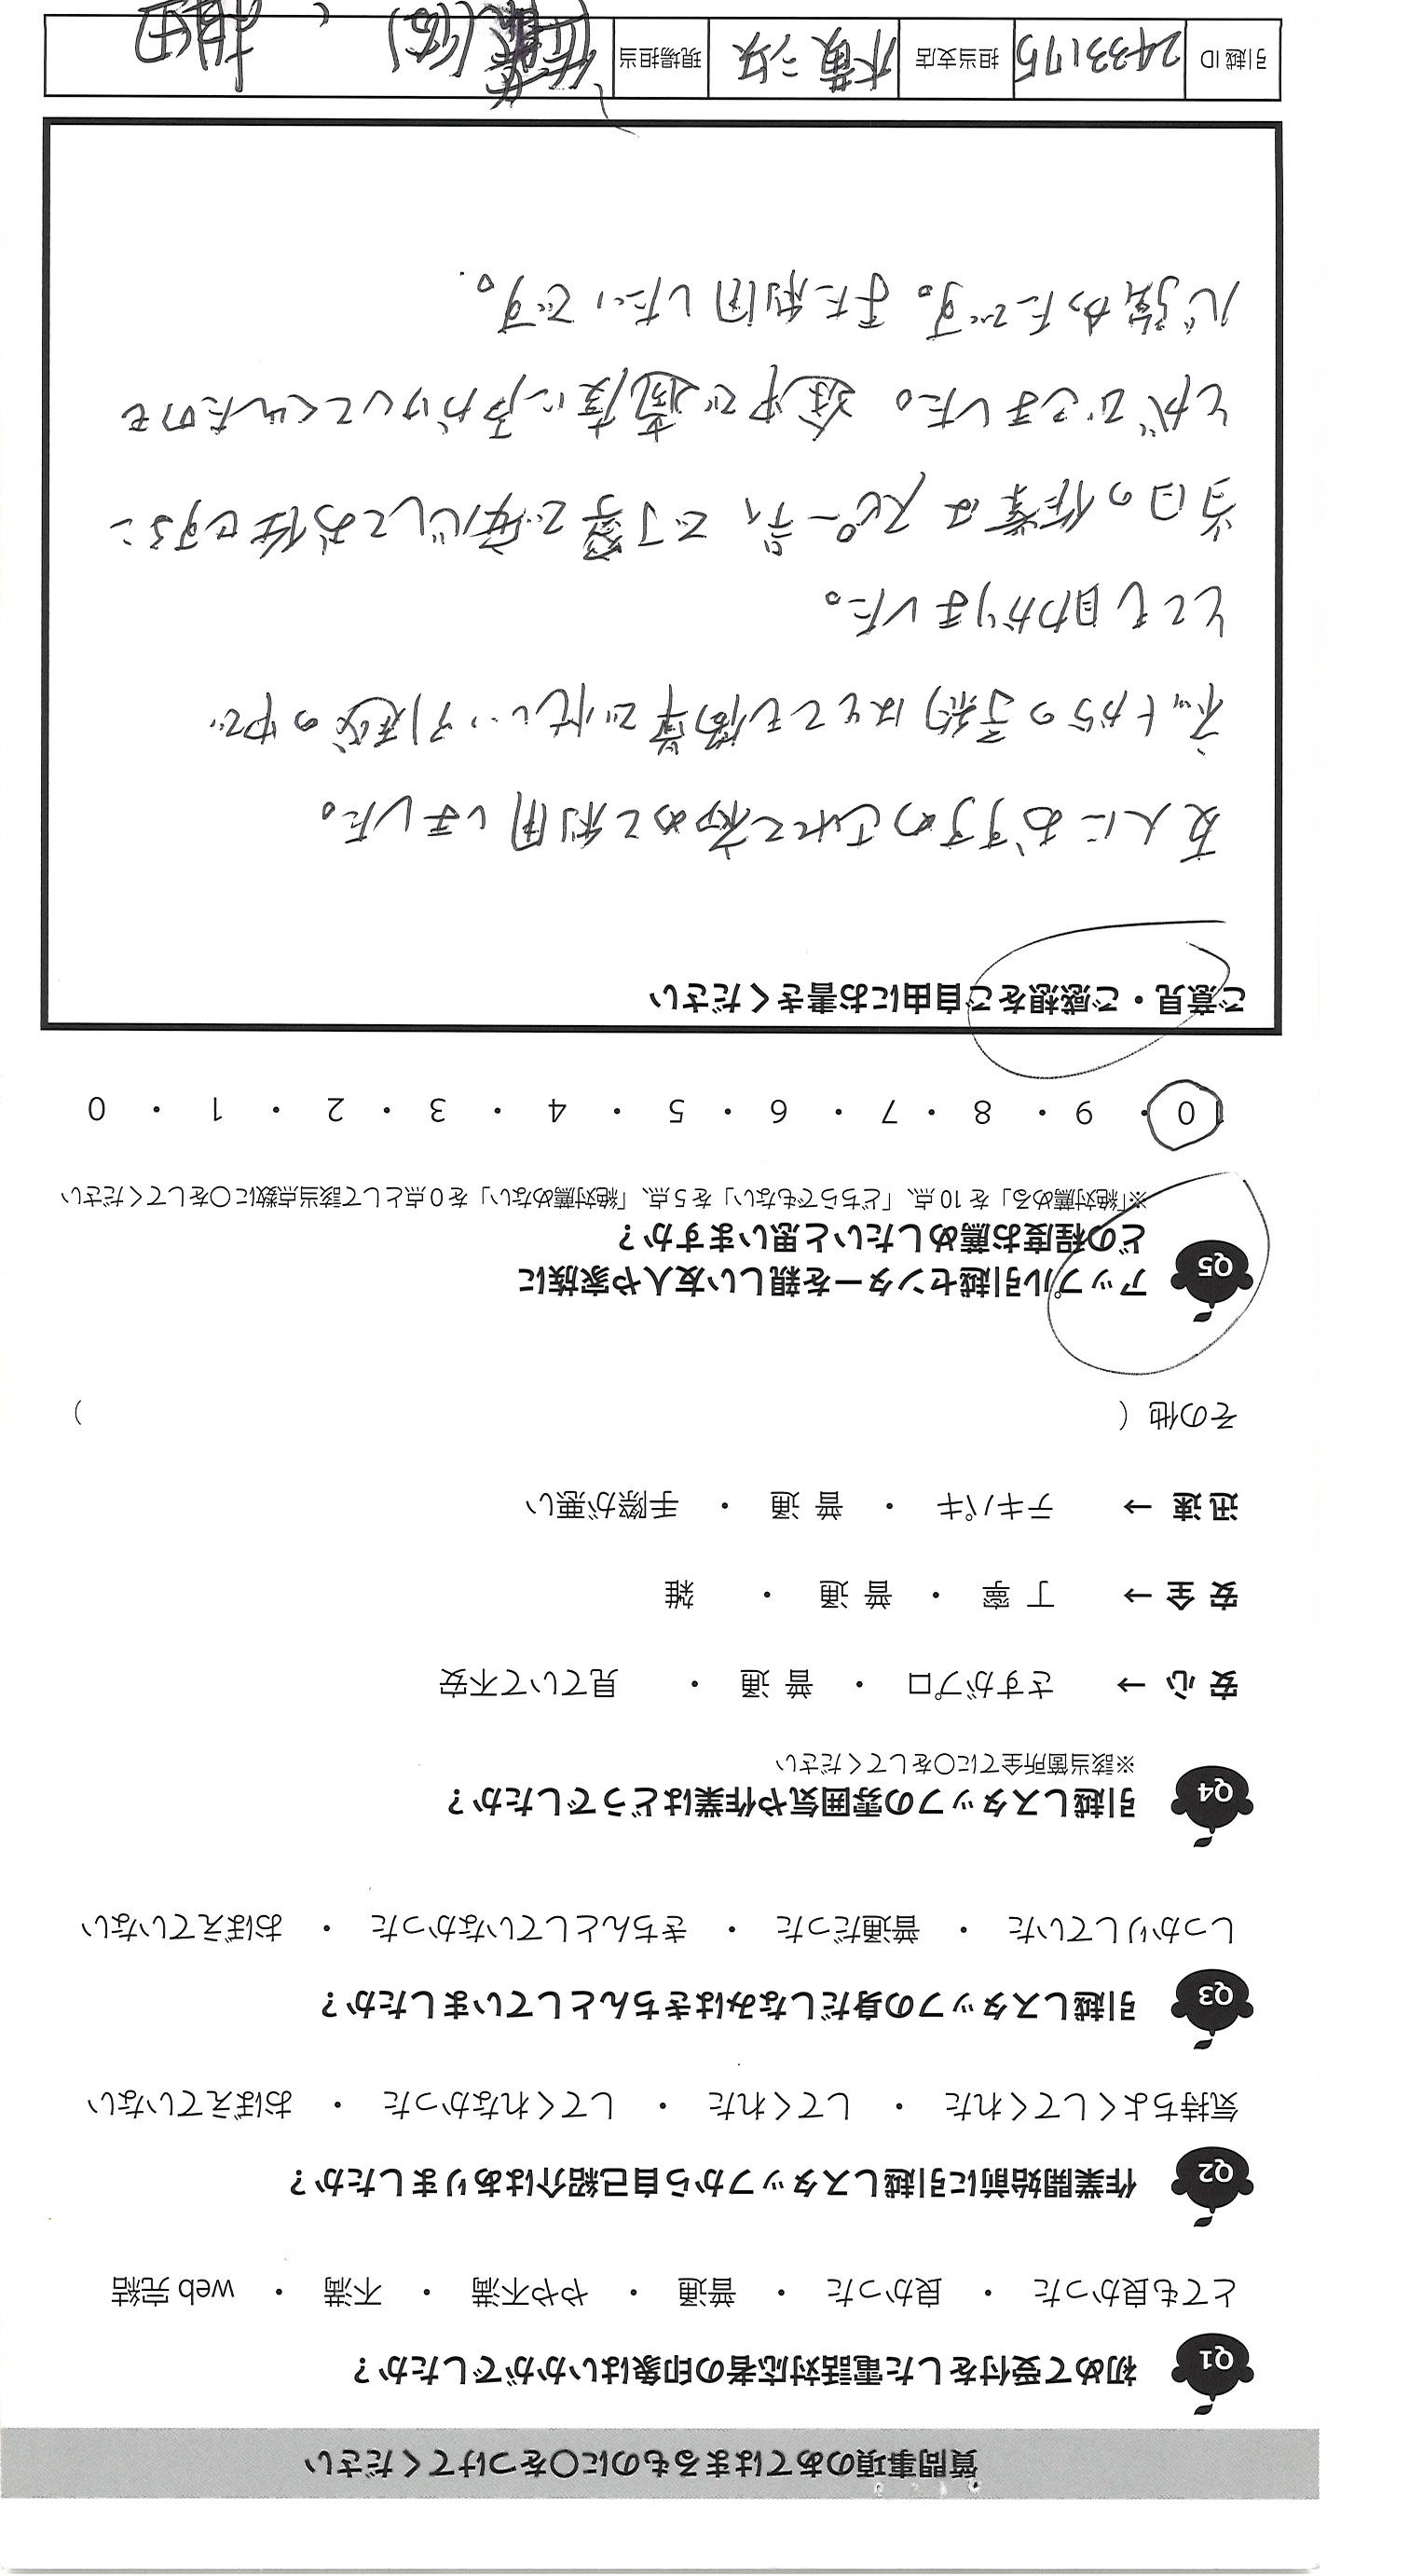 質問事項のあてはまるものに○をつけてください
Q1 初めて受付をした電話対応者の印象はいかがでしたか？
とても良かった ・ 良かった ・ 普通 ・ やや不満 ・ 不満 ・ web 完結
Q2 作業開始前に引越しスタッフから自己紹介はありましたか？
気持ちよくしてくれた ・ してくれた ・ してくれなかった ・ おぼえていない
Q3 引越しスタッフの身だしなみはきちんとしていましたか？
しっかりしていた ・ 普通だった ・ きちんとしていなかった ・ おぼえていない
Q4 引越しスタッフの雰囲気や作業はどうでしたか？
※該当箇所全てに○をしてください
安 心 → さすがプロ ・ 普 通 ・ 見ていて不安
安 全 → 丁 寧 ・ 普 通 ・ 雑
迅 速 → テキパキ ・ 普 通 ・ 手際が悪い
その他（ ）
Q5 アップル引越センターを親しい友人や家族に
どの程度お薦めしたいと思いますか？
※「絶対薦める」を 10 点、「どちらでもない」を 5 点、「絶対薦めない」を 0 点として該当点数に○をしてください
10 ・ 9 ・ 8 ・ 7 ・ 6 ・ 5 ・ 4 ・ 3 ・ 2 ・ 1 ・ 0
ご意見・ご感想をご自由にお書きください
友人におすすめされて初めて利用しました。
ネットからの予約はとても簡単で忙しい引越の中で
とても助かりました。
当日の作業はスピーディで丁寧で安心してお任せするこ
とができました。途中で適度に声かけしてくれたのも
心強かったです。また利用したいです。
引越 ID 2433175 担当支店 現場担当 相田